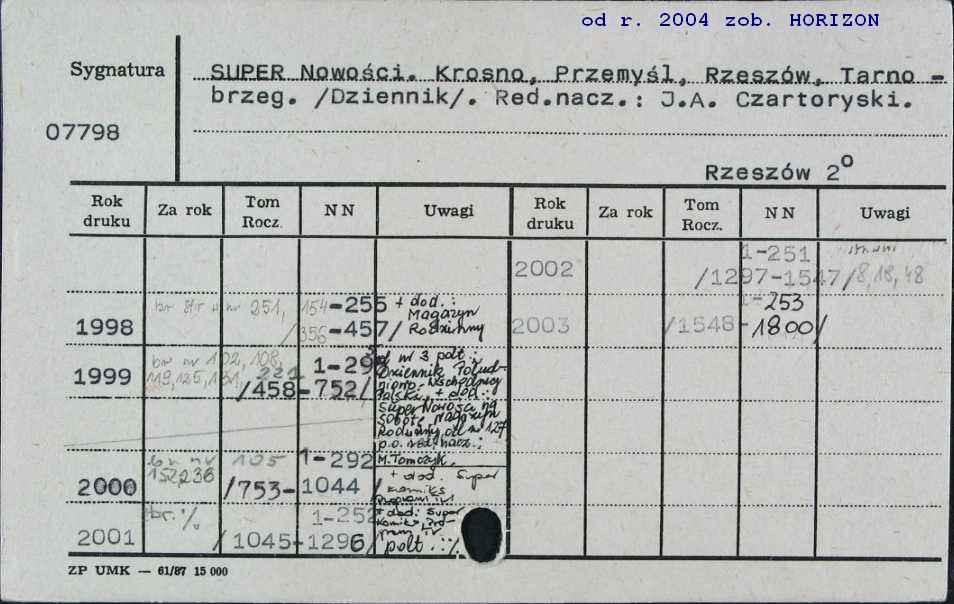 od r. 2004 zob. HORIZON
Sygnatura
SUPER Nowości. Krosno, Przemyśl, Rzeszów, Tarno-
brzeg. /Dziennik/. Red.nacz.: J.A. Czartoryski.
07798
Rzeszów 2°
Rok druku Za rok Tom Rocz. NN Uwagi Rok druku Za rok Tom Rocz. NN Uwagi
2002 1-251
/1297-1547/ 8,18,48
1998 251, 154-255 + dod.:
/356-457/ Magazyn
Rodzinny
2003 1-253
/1548-1800/
1999 br. nr 102, 108, 1-295 nr 3 podt.:
119,125,131, 221 /458-752/ Dziennik Połud-
niowo-Wschodniej
Polski, + dod.:
Super Nowości na
Sobotę, Magazyn
Rodzinny, od nr 127
p.o. red. nacz.:
M. Tomczyk.
2000 br. nr 105 1-292
152,236 /753-1044/ + dod. Super
Komiks
Program tv
2001 br. % 1-252 + dod: Super
/1045-1296/ Komiks, Pro-
gram tv
podt. :/.
ZP UMK — 61/87 15 000